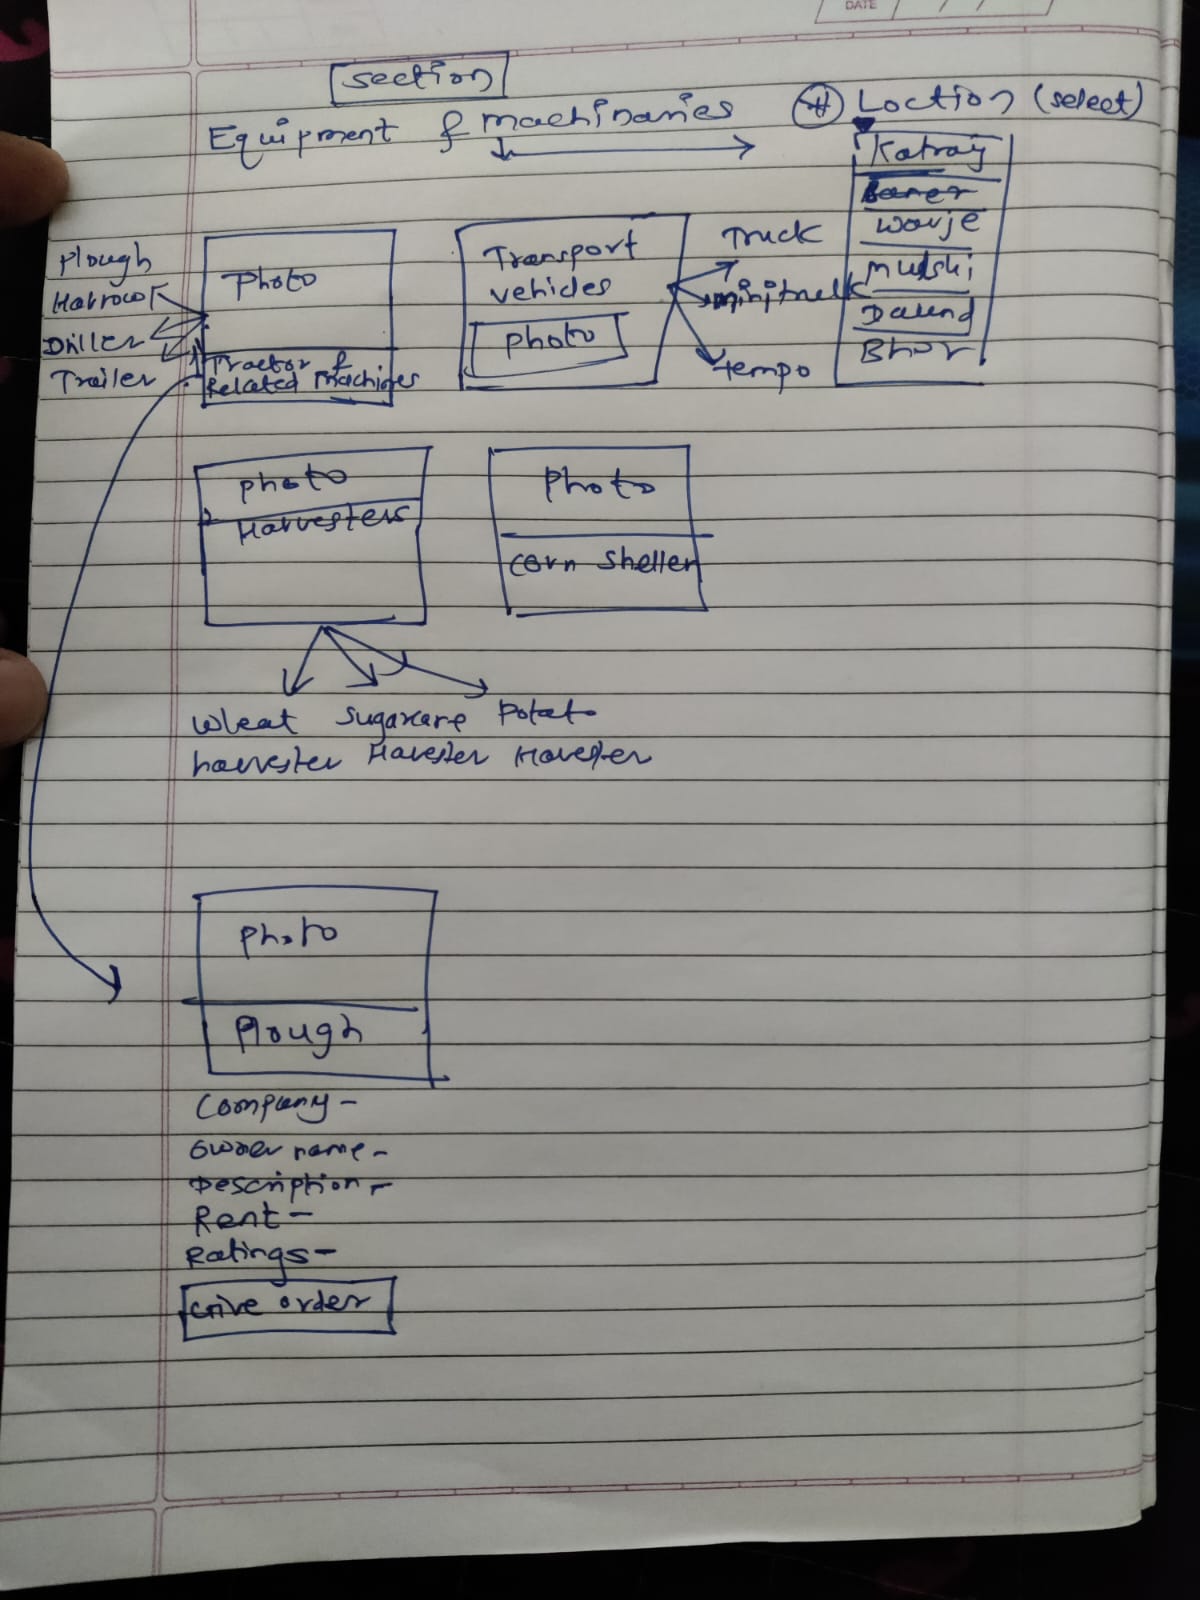 DATE
section
Equipment & machinaries
# Loction (select)
Katraj
Baner
Warje
Mulshi
Daund
Bhor
Plough
Harrow
Driller
Trailer
Photo
Tractor &
Related machines
Transport
vehicles
photo
Truck
minitruck
tempo
photo
Harvesters
Photo
corn sheller
Wheat Sugarcane Potato
harvester Harester Harester
photo
Plough
Company -
Owner name -
Description -
Rent -
Ratings -
Give order